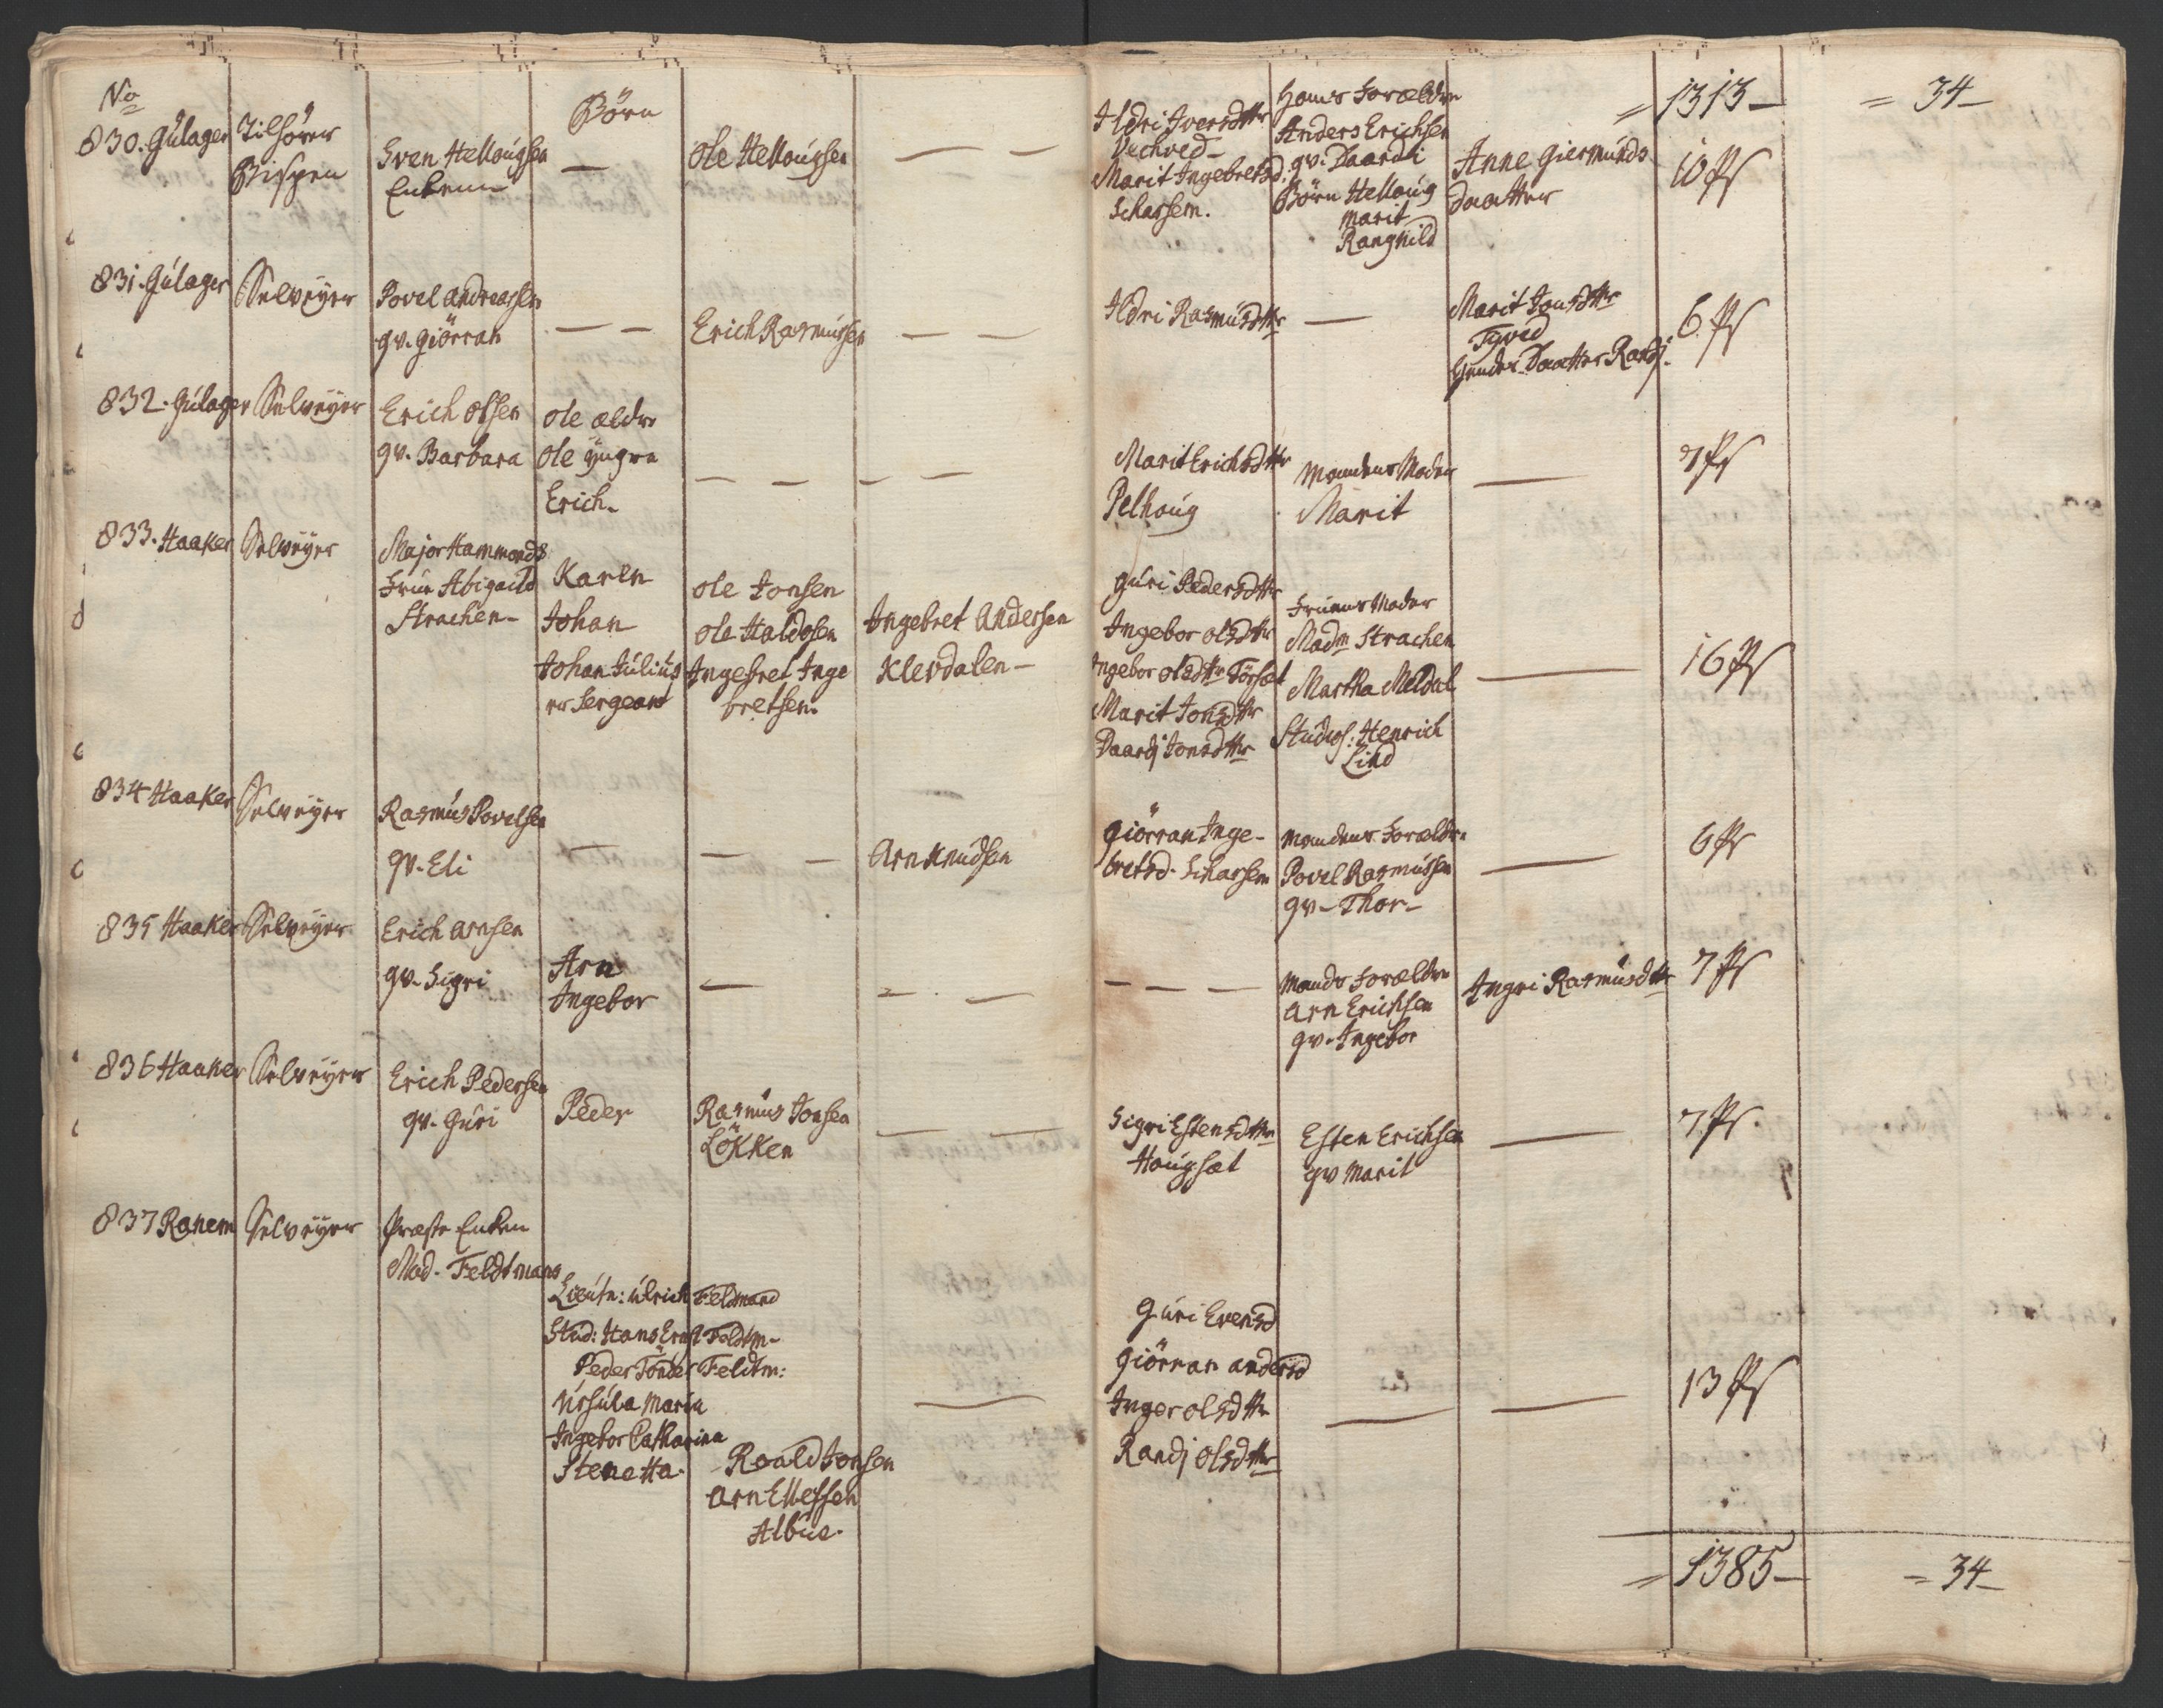 No
Börn
Hans Forældre
= 1313 –
= 34 –
830. Gúlager
Tilhörer
Bispen
Sven Helloúgsen
Enkem
—
Ole Helloúgsen
— —
Ildri Iversdttr
Vechved –
Marit Ingebretsd.
Scharsem.
Anders Erichsen
gv. Daardi
Börn Helloúg
Marit
Rangnild
Anne Giermúnds
daatter
10 Ps
831. Gúlager
Selveÿer
Povel Andreassen
gv. Giörran
— —
Erich Rasmússen
— —
Ildri Rasmúsdttr
—
Marit Jonsdttr
Tyved
hendes Daatter Randj.
6. Ps
832. Gúlager
Selveÿer
Erich Olsen
gv. Barbara
Ole ældre
Ole ÿngre
Erich.
— —
— —
Marit Erichsdttr
Pelhoúg
Mandens Moder
Marit
—
7 Ps
833. Haaker
Selveÿer
Major Hammonds
Frúe Abigaild
Strachen –
Karen
Johan
Johan Júliús
er Sergeant
Ole Jonsen
Ole Haldosen
Ingebret Inge
bretsen.
Ingebret Andersen
Klevdalen –
Gúri Pedersdttr
Ingebor Olsdttr
Ingebor Olsdttr Förset
Marit Jonsdttr
Daardj Jonsdttr
Frúens Moder
Madm Strachen
Martha Meldal
Studios: Henrich
Lind
—
16 Ps
834 Haaker
Selveÿer
Rasmús Povelsen
gv. Eli
—
— —
Arn Knúdsen
Giörran Inge-
bretsd. Scharsem
Mandens Forældre
Povel Rasmússen
gv – Thor –
—
6 Ps
835 Haaker
Selveÿer
Erich Arnsen
gv. Sigri
Arn
Ingebor
—
— —
— — —
Mands Forældre
Arn Erichsen
gv. Ingebor
Ingri Rasmúsdttr
7 Ps
836 Haaker
Selveÿer
Erich Pedersen
gv. Gúri
Peder
Rasmús Jonsen
Lökken
— —
Sigri Estensdttr
Hoúgset
Esten Erichsen
gv Marit
—
7. Ps.
837 Ranem
Selveÿer
Præste Enken
Mad. Feldtmans
Lieutn: Úlrich Feldmand
Stud: Hans Ernst Feldtm –
Peder Tönder Feldtm:
Úrsúla Maria
Ingebor Catharina
Stenetta.
Roald Jonsen
Arn Ellefsen
Albúe.
—
Gúri Evensd
Giörran Andersd
Inger Olsdttr
Randj Olsdttr
—
—
13 Ps
= 1385 –
= 34 –